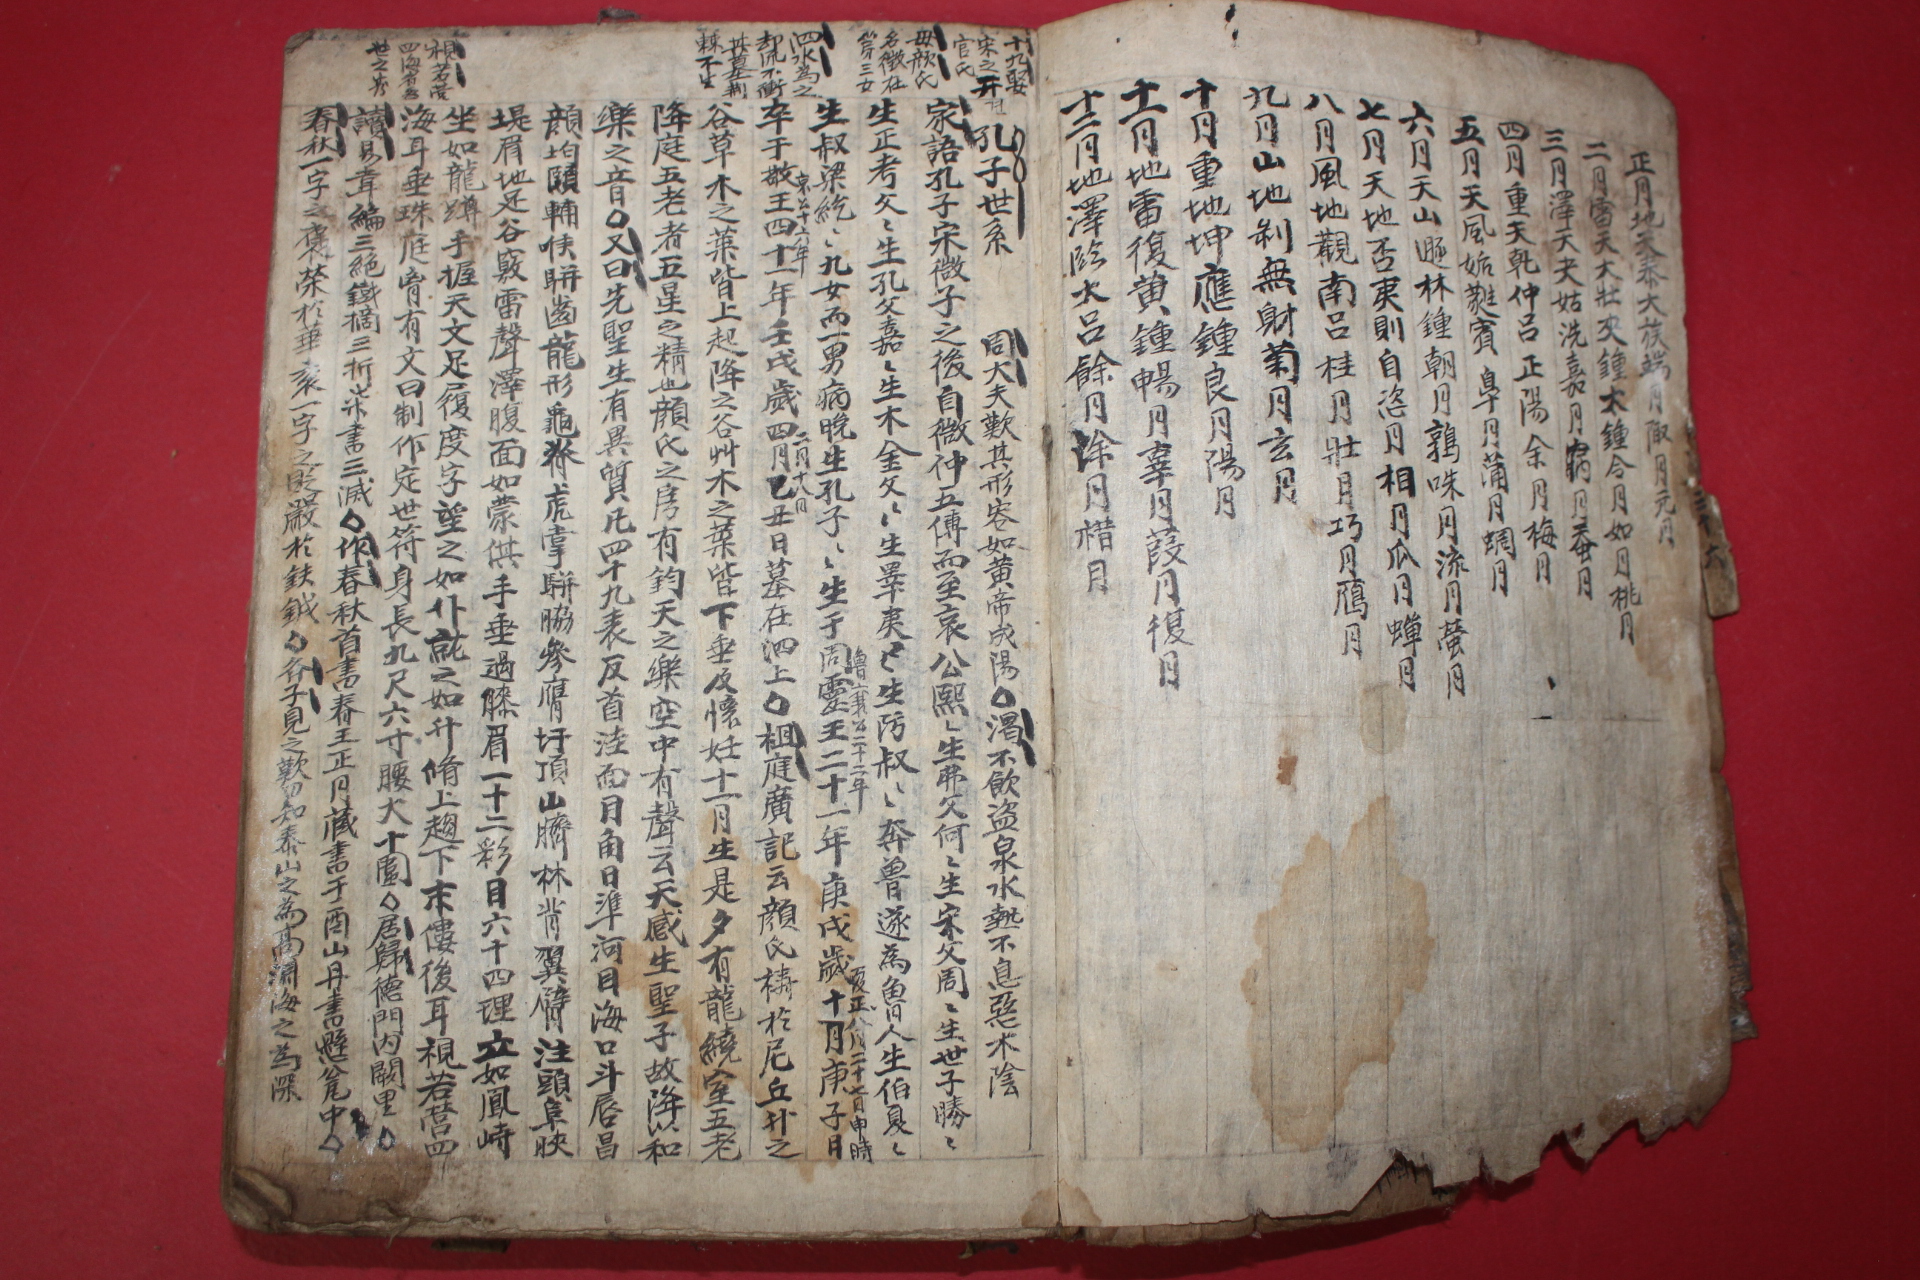 正月地天泰大簇端月陬月元月
二月雷天大壯夾鍾大鍾令月如月桃月
三月澤天夬姑洗嘉月病月蚕月
四月重天乾仲呂正陽余月梅月
五月天風姤蕤賓皐月蒲月蜩月
六月天山遯林鍾朝月鶉咮月流月螢月
七月天地否夷則自恣月相月瓜月蟬月
八月風地觀南呂桂月壯月巧月鴈月
九月山地剝無射菊月玄月
十月重地坤應鍾良月陽月
十一月地雷復黃鍾暢月辜月葭月復月
十二月地澤臨大呂餘月涂月楷月
十九娶
宋之开
官氏
母顔氏
名徵在
第三女
泗水為之
却流不衝
其墓荆
棘不生
視若营
四海
世之
孔子世系 周大夫歎其形容如黃帝成陽◇渴不飲盜泉水熱不息惡木陰
家語孔子宋微子之後自微仲五傳而至哀公熙〻生弗父何〻生宋父周〻生世子勝〻
生正考父〻生孔父嘉〻生木金父〻生睪夷〻生防叔〻奔魯遂為魯人生伯夏〻
生叔梁紇〻九女而一男病晩生孔子〻生于周靈王二十一年庚戌歲十月庚子日
魯襄公二十二年
夏正八月二十七日申時
卒于敬王四十一年壬戌歲四月乙丑日墓在泗上◇祖庭廣記云顔氏禱於尼丘升之
哀公十六年
二月十八日
谷草木之葉皆上起降之谷艸木之葉皆下垂及懷妊十一月生是夕有龍繞室五老
降庭五老者五星之精也顔氏之房有鈞天之樂空中有聲云天感生聖子故降以和
樂之音◇又曰先聖生有異質凡四十九表反首洼面月角日準河目海口斗唇昌
顔均頤輔喉騈齒龍形龜脊虎掌騈脇參膺圩頂山臍林背翼臂注頭阜陝
堤眉地足谷竅雷聲澤腹面如蒙倛手垂過膝眉一十二彩目六十四理立如鳳峙
坐如龍蹲手握天文足履度字望之如仆就之如升脩上趨下末僂後耳視若营四
海耳垂珠庭胷有文曰制作定世符身長九尺六寸腰大十圍◇居歸德門內闕里◇
讀易韋編三絕鐵擿三折柒書三滅◇作春秋首書春王正月藏書于酉山丹書懸瓮中◇
春秋一字之褒榮於華衮一字之貶嚴於鈇鉞◇谷子見之歎曰知泰山之為高淵海之為深